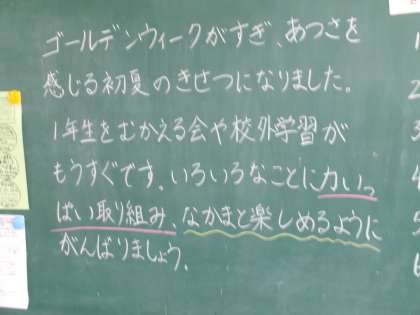 ゴールデンウィークがすぎ、あつさを
感じる初夏のきせつになりました。
1年生をむかえる会や校外学習が
もうすぐです。いろいろなことに力いっ
ぱい取り組み、なかまと楽しめるように
がんばりましょう。